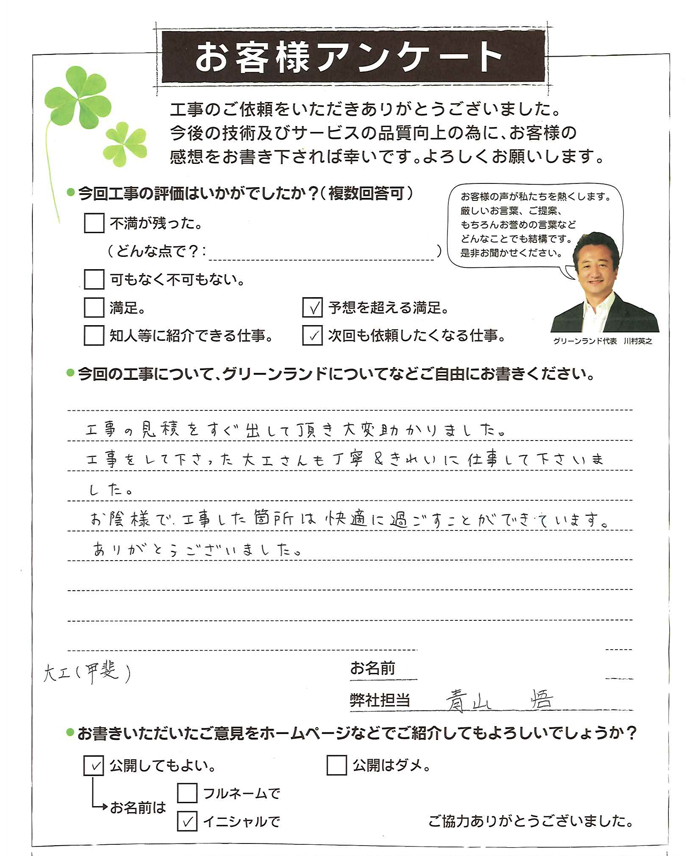 お客様アンケート
工事のご依頼をいただきありがとうございました。
今後の技術及びサービスの品質向上の為に、お客様の
感想をお書き下されば幸いです。よろしくお願いします。
● 今回工事の評価はいかがでしたか?(複数回答可)
不満が残った。
(どんな点で?: )
可もなく不可もない。
満足。
✓ 予想を超える満足。
知人等に紹介できる仕事。
✓ 次回も依頼したくなる仕事。
お客様の声が私たちを熱くします。
厳しいお言葉、ご提案、
もちろんお誉めの言葉など
どんなことでも結構です。
是非お聞かせください。
グリーンランド代表 川村英之
● 今回の工事について、グリーンランドについてなどご自由にお書きください。
工事の見積をすぐ出して頂き大変助かりました。
工事をして下さった大工さんも丁寧&きれいに仕事して下さいま
した。
お陰様で、工事した箇所は快適に過ごすことができています。
ありがとうございました。
大工(甲斐)
お名前
弊社担当 青山 悟
● お書きいただいたご意見をホームページなどでご紹介してもよろしいでしょうか?
✓ 公開してもよい。
公開はダメ。
お名前は
フルネームで
✓ イニシャルで
ご協力ありがとうございました。